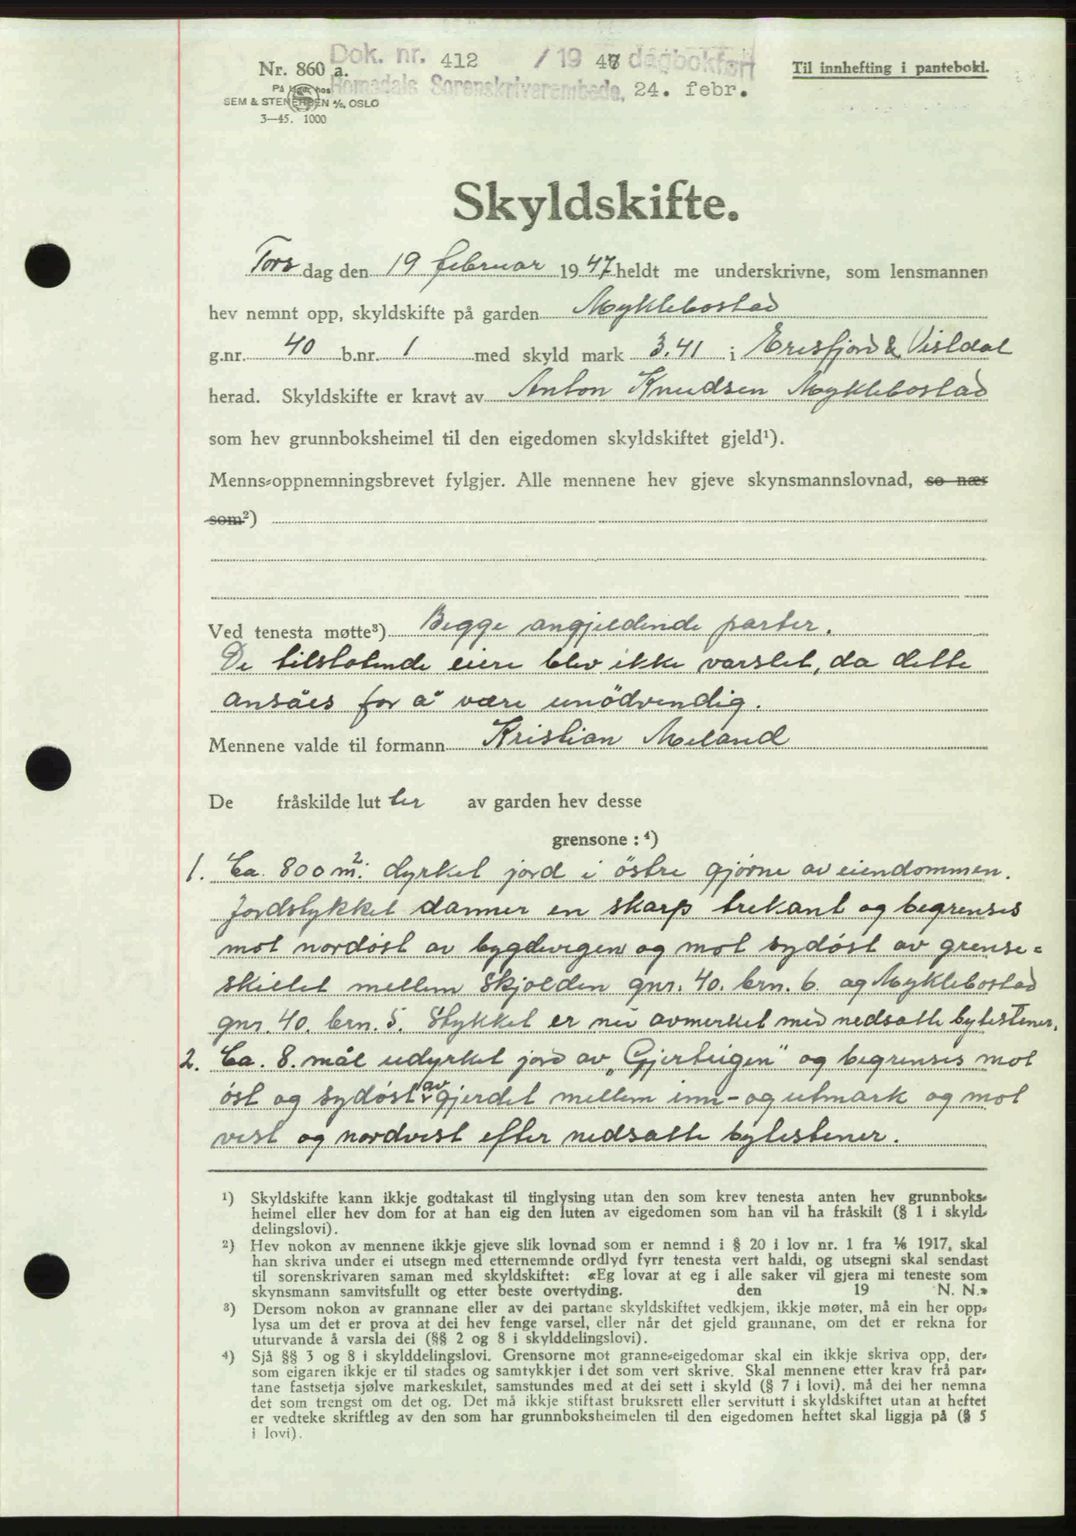 Dok. nr. 412 / 19 47 dagbokført
Nr. 860 a.
Til innhefting i pantebok.
Romsdals Sorenskriverembede, 24. febr.
På lager hos
SEM & STENERSEN A/S, OSLO
3—45. 1000
Skyldskifte.
Tors dag den 19 februar 1947 heldt me underskrivne, som lensmannen
hev nemnt opp, skyldskifte på garden Myklebostad
g.nr. 40 b.nr. 1 med skyld mark 3.41 i Eresfjord & Vistdal
herad. Skyldskifte er kravt av Anton Knudsen Myklebostad
som hev grunnboksheimel til den eigedomen skyldskiftet gjeld¹).
Menns-oppnemningsbrevet fylgjer. Alle mennene hev gjeve skynsmannslovnad, so nær
som²)
Ved tenesta møtte³) Begge angjeldende parter.
De tilstøtende eiere blev ikke varslet, da dette
ansåes for å være unödvendig.
Mennene valde til formann Kristian Meland
De fråskilde lutter av garden hev desse
grensone: ⁴)
1. Ca. 800 m². dyrket jord i östre gjörne av eiendommen.
Jordstykket danner en skarp trekant og begrenses
mot nordöst av bygdevegen og mot sydöst av grense=
skillet mellem Skjolden gnr. 40. brn. 6. og Myklebostad
gnr. 40. brn. 5. Stykket er nu avmerket med nedsatte bytestener.
2. Ca. 8. mål udyrket jord av "Gjerteigen" og begrenses mot
öst og sydöst av gjerdet mellem inn- og utmark og mot
vest og nordvest efter nedsatte bytestener.
¹) Skyldskifte kann ikkje godtakast til tinglysing utan den som krev tenesta anten hev grunnboks-
heimel eller hev dom for at han eig den luten av eigedomen som han vil ha fråskilt (§ 1 i skyld-
delingslovi).
²) Hev nokon av mennene ikkje gjeve slik lovnad som er nemnd i § 20 i lov nr. 1 fra ¹/₆ 1917, skal
han skriva under ei utsegn med etternemnde ordlyd fyrr tenesta vert haldi, og utsegni skal sendast
til sorenskrivaren saman med skyldskiftet: «Eg lovar at eg i alle saker vil gjera mi teneste som
skynsmann samvitsfullt og etter beste overtyding. den 19 N. N.»
³) Dersom nokon av grannane eller av dei partane skyldskiftet vedkjem, ikkje møter, må ein her opp-
lysa um det er prova at dei hev fenge varsel, eller når det gjeld grannane, om det er rekna for
uturvande å varsla dei (§§ 2 og 8 i skylddelingslovi).
⁴) Sjå §§ 3 og 8 i skylddelingslovi. Grensorne mot granne-eigedomar skal ein ikkje skriva opp, der-
som eigaren ikkje er til stades og samtykkjer i det som vert skrive. Skal mennene etter krav frå par-
tane fastsetja sjølve markeskilet, samstundes med at dei sett i skyld (§ 7 i lovi), må dei her nemna
det som trengst om det og. Det må ikkje stiftast bruksrett eller servitutt i skyldskiftet utan at heftet
er vedteke skriftleg av den som har grunnboksheimelen til den eigedomen heftet skal liggja på (§ 5
i lovi).